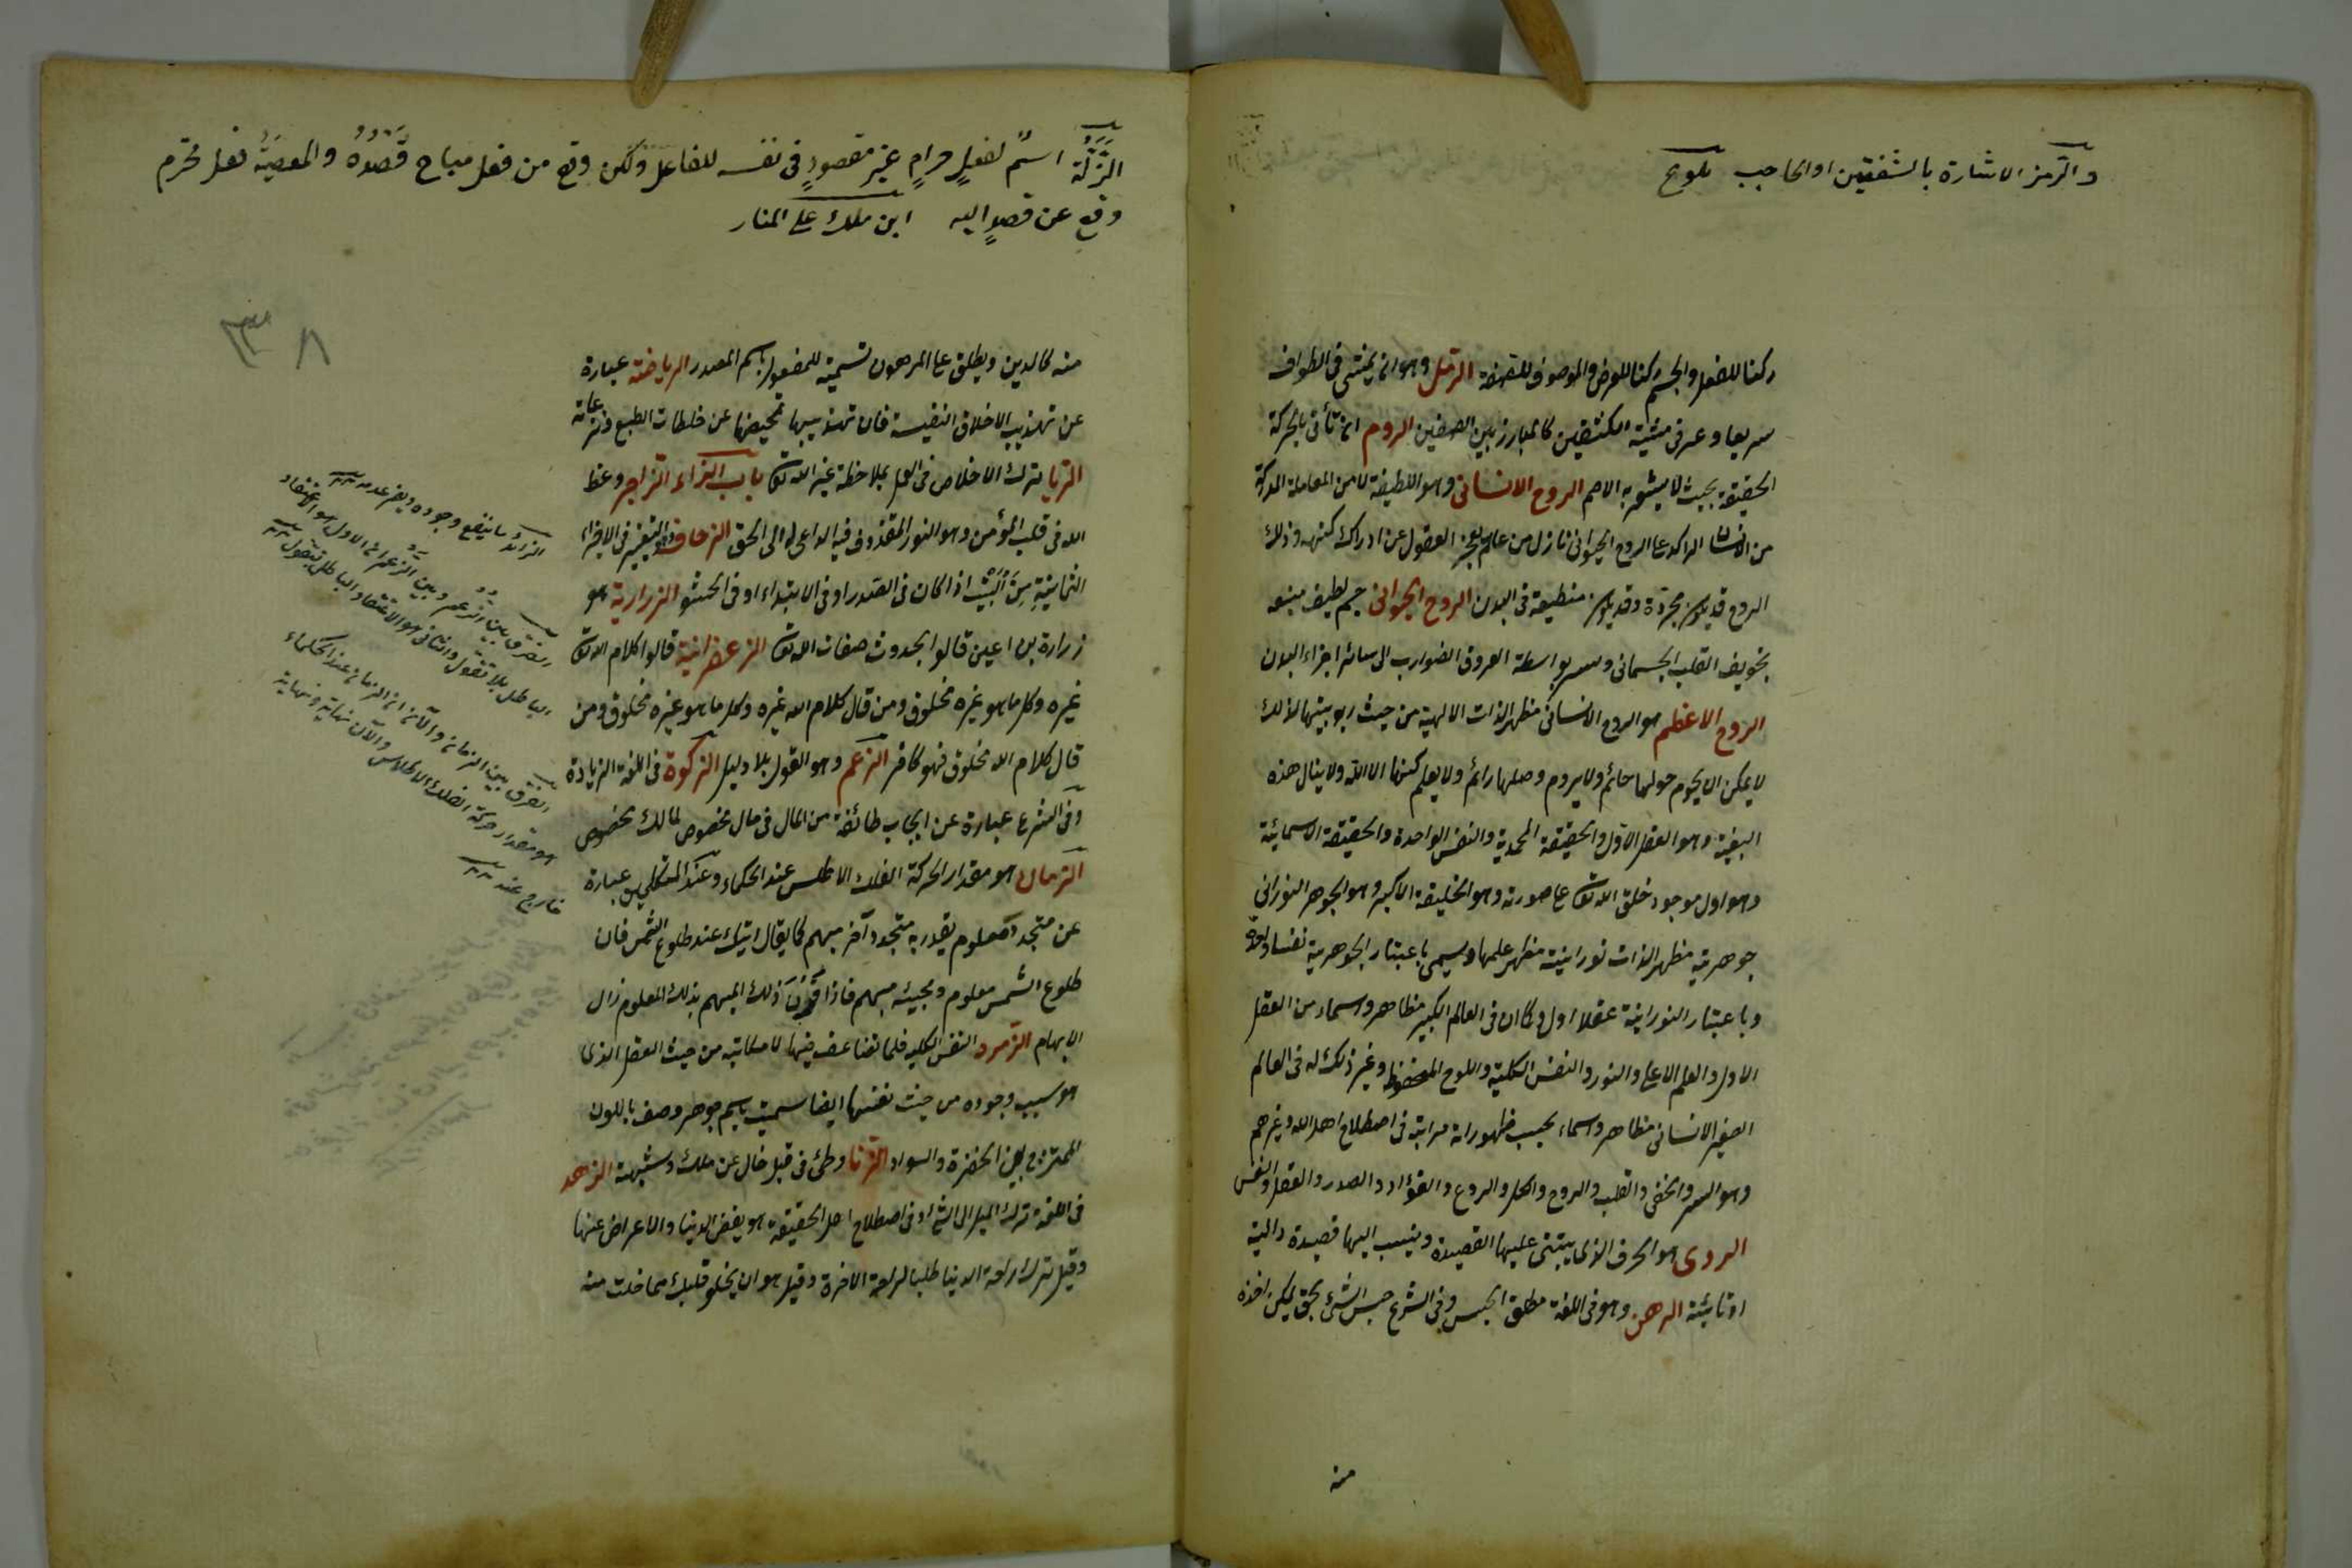 والرمز الاشارة بالشفتين او الحاجب تلويح
ركنا للفعل والجسم ركنا للعرض والموصوف للصفة الرمل وهو ان يمشى فى الطواف
سريعا وعرفى مشية الكتفين كالمبارز بين الصفين الروم ان تأتى بالحركة
الخفيفة بحيث لا يشعر به الاصم الروح الانسانى وهو اللطيفة العاملة المدركة
من الانسان الراكبة على الروح الحيوانى نازل من عالم تعجز العقول عن ادراك كنهه وذلك
الروح قد يكون مجردة وقد يكون منطبعة فى البدن الروح الحيوانى جسم لطيف منبعه
تجويف القلب الجسمانى وينتشر بواسطة العروق الضوارب الى سائر اجزاء البدن
الروح الاعظم هو الروح الانسانى مظهر الذات الالهية من حيث ربوبيتها لذلك
لا يمكن ان يحوم حولها حائم ولا يروم وصلها رائم ولا يعلم كنهها الا الله ولا ينال هذه
البغية وهو العقل الاول والحقيقة المحمدية والنفس الواحدة والحقيقة الاسمائية
وهو اول موجود خلقه الله تعالى على صورته وهو الخليفة الاكبر وهو الجوهر النورانى
جوهرية مظهر الذات نورانية مظهر علمها ويسمى باعتبار الجوهرية نفسا واحدة
وباعتبار النورانية عقلا اول وكان فى العالم الكبير مظاهر واسماء من العقل
الاول والقلم الاعلى والنور والنفس الكلية واللوح المحفوظ وغير ذلك له فى العالم
الصغير الانسانى مظاهر واسماء بحسب ظهوراته مراتبه فى اصطلاح اهل الله وغيرهم
وهو السر والخفى والقلب والروح والكلمة والروع والفؤاد والصدر والعقل والنفس
الروى هو الحرف الذى يبتنى عليها القصيدة وينسب اليها قصيدة دالية
او تائية الرهن وهو فى اللغة مطلق الحبس وفى الشرع حبس الشئ بحق يمكن اخذه
منه
الزلة اسم لفعل حرام غير مقصود فى نفسه للفاعل ولكن وقع من فعل مباح قصده والمعصية فعل محرم
وقع عن قصد اليه ابن ملك على المنار
٣٨
منه كالدين ويطلق على المرهون تسمية للمفعول باسم المصدر الرياضة عبارة
عن تهذيب الاخلاق النفسية فان تهذيبها تمحيضها عن خلطات الطبع ونزعاته
الريا ترك الاخلاص فى العمل بملاحظة غير الله تعالى باب الزاء الزاجر وعظ
الله فى قلب المؤمن وهو النور المقذوف فيه الداعى له الى الحق الزحاف هو التغيير فى الاجزاء
الثمانية من البيت اذا كان فى الصدر او فى الابتداء او فى الحشو الزرارية هو
زرارة بن اعين قالوا بحدوث صفات الله تعالى الزعفرانية قالوا كلام الله تعالى
غيره وكل ما هو غيره مخلوق ومن قال كلام الله غيره وكل ما هو غيره مخلوق ومن
قال كلام الله مخلوق فهو كافر الزعم وهو القول بلا دليل الزكوة فى اللغة الزيادة
وفى الشرع عبارة عن ايجاب طائفة من المال فى مال مخصوص لمالك مخصوص
الزمان هو مقدار الحركة الفلك الاطلس عند الحكماء وعند المتكلمين عبارة
عن متجدد معلوم يقدر به متجدد آخر مبهم كما يقال اتيك عند طلوع الشمس فان
طلوع الشمس معلوم ومجيئه مبهم فاذا قرن ذلك المبهم بذلك المعلوم زال
الابهام الزمرد النفس الكلية فلما تضاعف فيها الامكانية من حيث العقل الذى
هو سبب وجوده من حيث نفسها ايضا سميت باسم جوهر وصف باللون
الممتزج بين الخضرة والسواد الزنا وطئ فى قبل خال عن ملك وشبهة الزهد
فى اللغة ترك الميل الى الشئ وفى اصطلاح اهل الحقيقة هو بغض الدنيا والاعراض عنها
وقيل ترك راحة الدنيا طلبا لراحة الاخرة وقيل هو ان يخلو قلبك مما خلت منه
الزائد ما ينتفع وجوده ولا يضر عدمه
الفرق بين الزعم وبين الزعم ان الاول هو الاعتقاد
الباطل بلا تقول والثانى هو الاعتقاد الباطل بتقول
الفرق بين الزمان والآن ان الزمان عند الحكماء
هو مقدار حركة الفلك الاطلس والآن نهاية ونهاية
خارج عنه